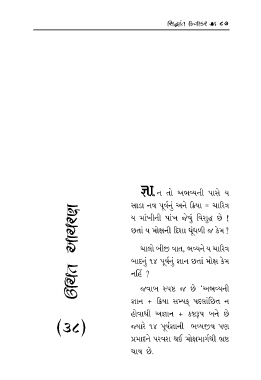 સિદ્ધાંત દિવાકર ૦ ૮૭
જ્ઞાન તો અભવ્યની પાસે ય
સાડા નવ પૂર્વનું અને ક્રિયા = ચારિત્ર
ય માંખીની પાંખ જેવું વિશુદ્ધ છે !
છતાં ય મોક્ષની દિશા ધૂંધળી જ કેમ ?
ચાલો બીજી વાત, ભવ્યને ય ચારિત્ર
બાદનું ૧૪ પૂર્વનું જ્ઞાન છતાં મોક્ષ કેમ
નહિ ?
જવાબ સ્પષ્ટ જ છે 'અભવ્યની
જ્ઞાન + ક્રિયા સમ્યક્ પદલાંછિત ન
હોવાથી અજ્ઞાન + કષ્ટરૂપ બને છે
જ્યારે ૧૪ પૂર્વજ્ઞાની ભવ્યજીવ પણ
પ્રમાદને પરવશ થઈ મોક્ષમાર્ગથી ભ્રષ્ટ
થાય છે.
ઉચિત આચરણ
(૩૮)